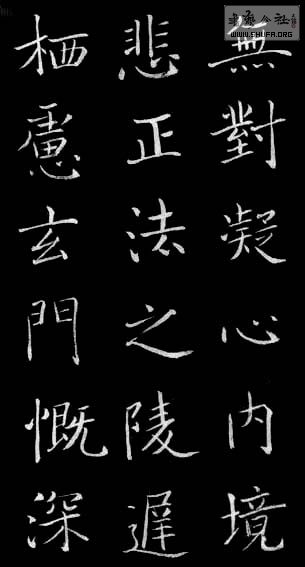 無對凝心内境
悲正法之陵遲
栖慮玄門慨深
書法公社
www.9HUFA.ORG